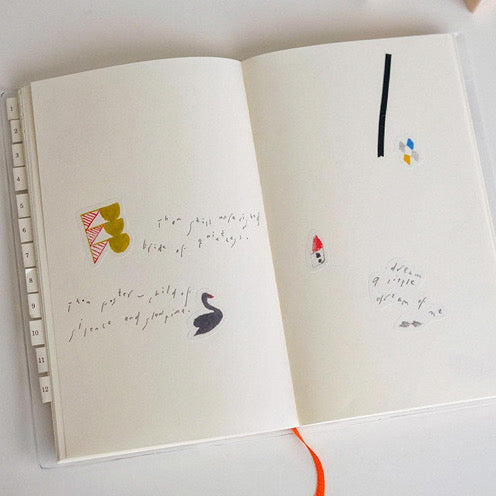 1
2
3
4
5
6
7
8
9
10
11
12
Thou still unravished
bride of quietness.
Thou foster-child of
silence and slow time.
dream
a little
dream of
me